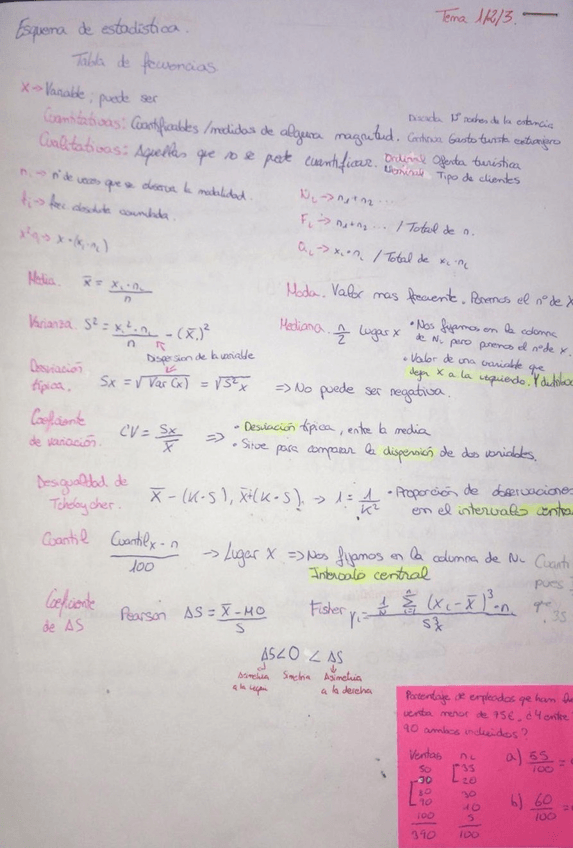 Tema 1/2/3.
Esquema de estadística.
Tabla de frecuencias
X → Variable, puede ser
Cuantitativas: Cuantificables / medidas de alguna magnitud.
Discreta Nº noches de la estancia
Continua Gasto turista extranjero
Cualitativas: Aquellas que no se puede cuantificar.
Ordinal Oferta turística
Nominal Tipo de clientes
nᵢ → nº de veces que se observa la modalidad.
fᵢ → frec. absoluta acumulada.
Nᵢ → n₁+n₂...
Fᵢ → n₁+n₂... / Total de n.
aᵢ → xᵢ·nᵢ / Total de xᵢ·nᵢ
Media. x̄ = xᵢ·nᵢ / n
Moda. Valor mas frecuente. Ponemos el nº de X
Varianza S² = xᵢ²·nᵢ / n - (x̄)²
Dispersion de la variable
Mediana. n/2 Lugar X
• Nos fijamos en la columna
de Nᵢ pero ponemos el nº de X.
• Valor de una variable que
deja X a la izquierda. Y
Desviación
típica. Sx = √Var(x) = √S²x ⇒ No puede ser negativa.
Coeficiente
de variación. CV = Sx / X̄ ⇒
• Desviación típica, entre la media
• Sirve para comparar la dispersión de dos variables.
Desigualdad de
Tchebycher. X̄-(K·S), X̄+(K·S). → 1 = 1/K²
• Proporción de observaciones
en el intervalo
Cuantil Cuantilx·n / 100 → Lugar X ⇒ Nos fijamos en la columna de Nᵢ
Intervalo central
pues
Coeficiente
de AS Pearson AS = X̄-MO / S
Fisher γ₁ = 1/N Σ (xᵢ-X̄)³·nᵢ / S³x
AS<0<AS
Asimetria a la izqda
Simetria
Asimetria a la derecha
Porcentaje de empleados que han
venta menor de 75€. ó 4 entre
90 ambos incluidos?
Ventas nᵢ
50 35
20
80 30
90 10
100 5
390 100
a) 55/100 =
b) 60/100 =